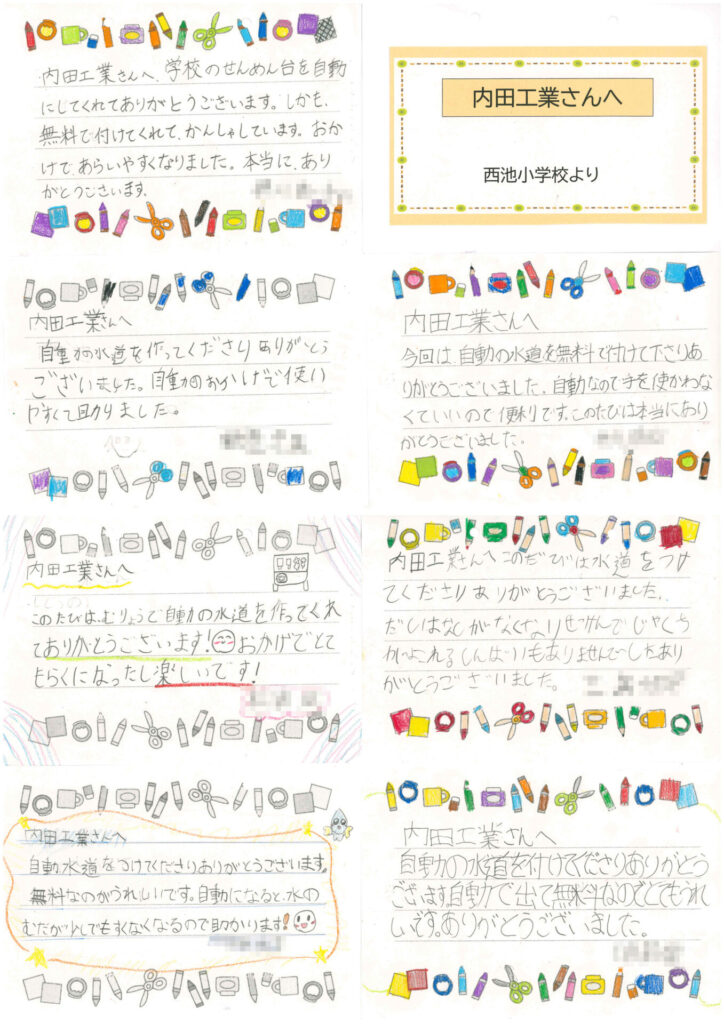 内田工業さんへ、学校のせんめん台を自動
にしてくれてありがとうございます。しかも、
無料で付けてくれて、かんしゃしています。おか
げで、あらいやすくなりました。本当に、あり
がとうございます。
内田工業さんへ
西池小学校より
内田工業さんへ
自動の水道を作ってくださりありがとう
ございました。自動のおかげで使い
やすくて助かりました。
内田工業さんへ
今回は自動の水道を無料で付けて下さりあ
りがとうございました。自動なので手を使かわな
くていいので便利です。このたびは本当にあり
がとうございました。
内田工業さんへ
このたびは、むりょうで自動の水道を作ってくれ
てありがとうございます!おかげでとて
もらくになったし楽しいです!
内田工業さんへこのたびは水道をつけ
てくださりありがとうございました。
だしはなしがなくなり
がとうございました。
内田工業さんへ
自動水道をつけてくださりありがとうございます。
無料なのがうれしいです。自動になると、水の
むだが少しでもすくなくなるので助かります!
内田工業さんへ
自動の水道を付けてくださりありがとう
ございます。自動で出て無料なのでとてもうれ
しいです。ありがとうございました。